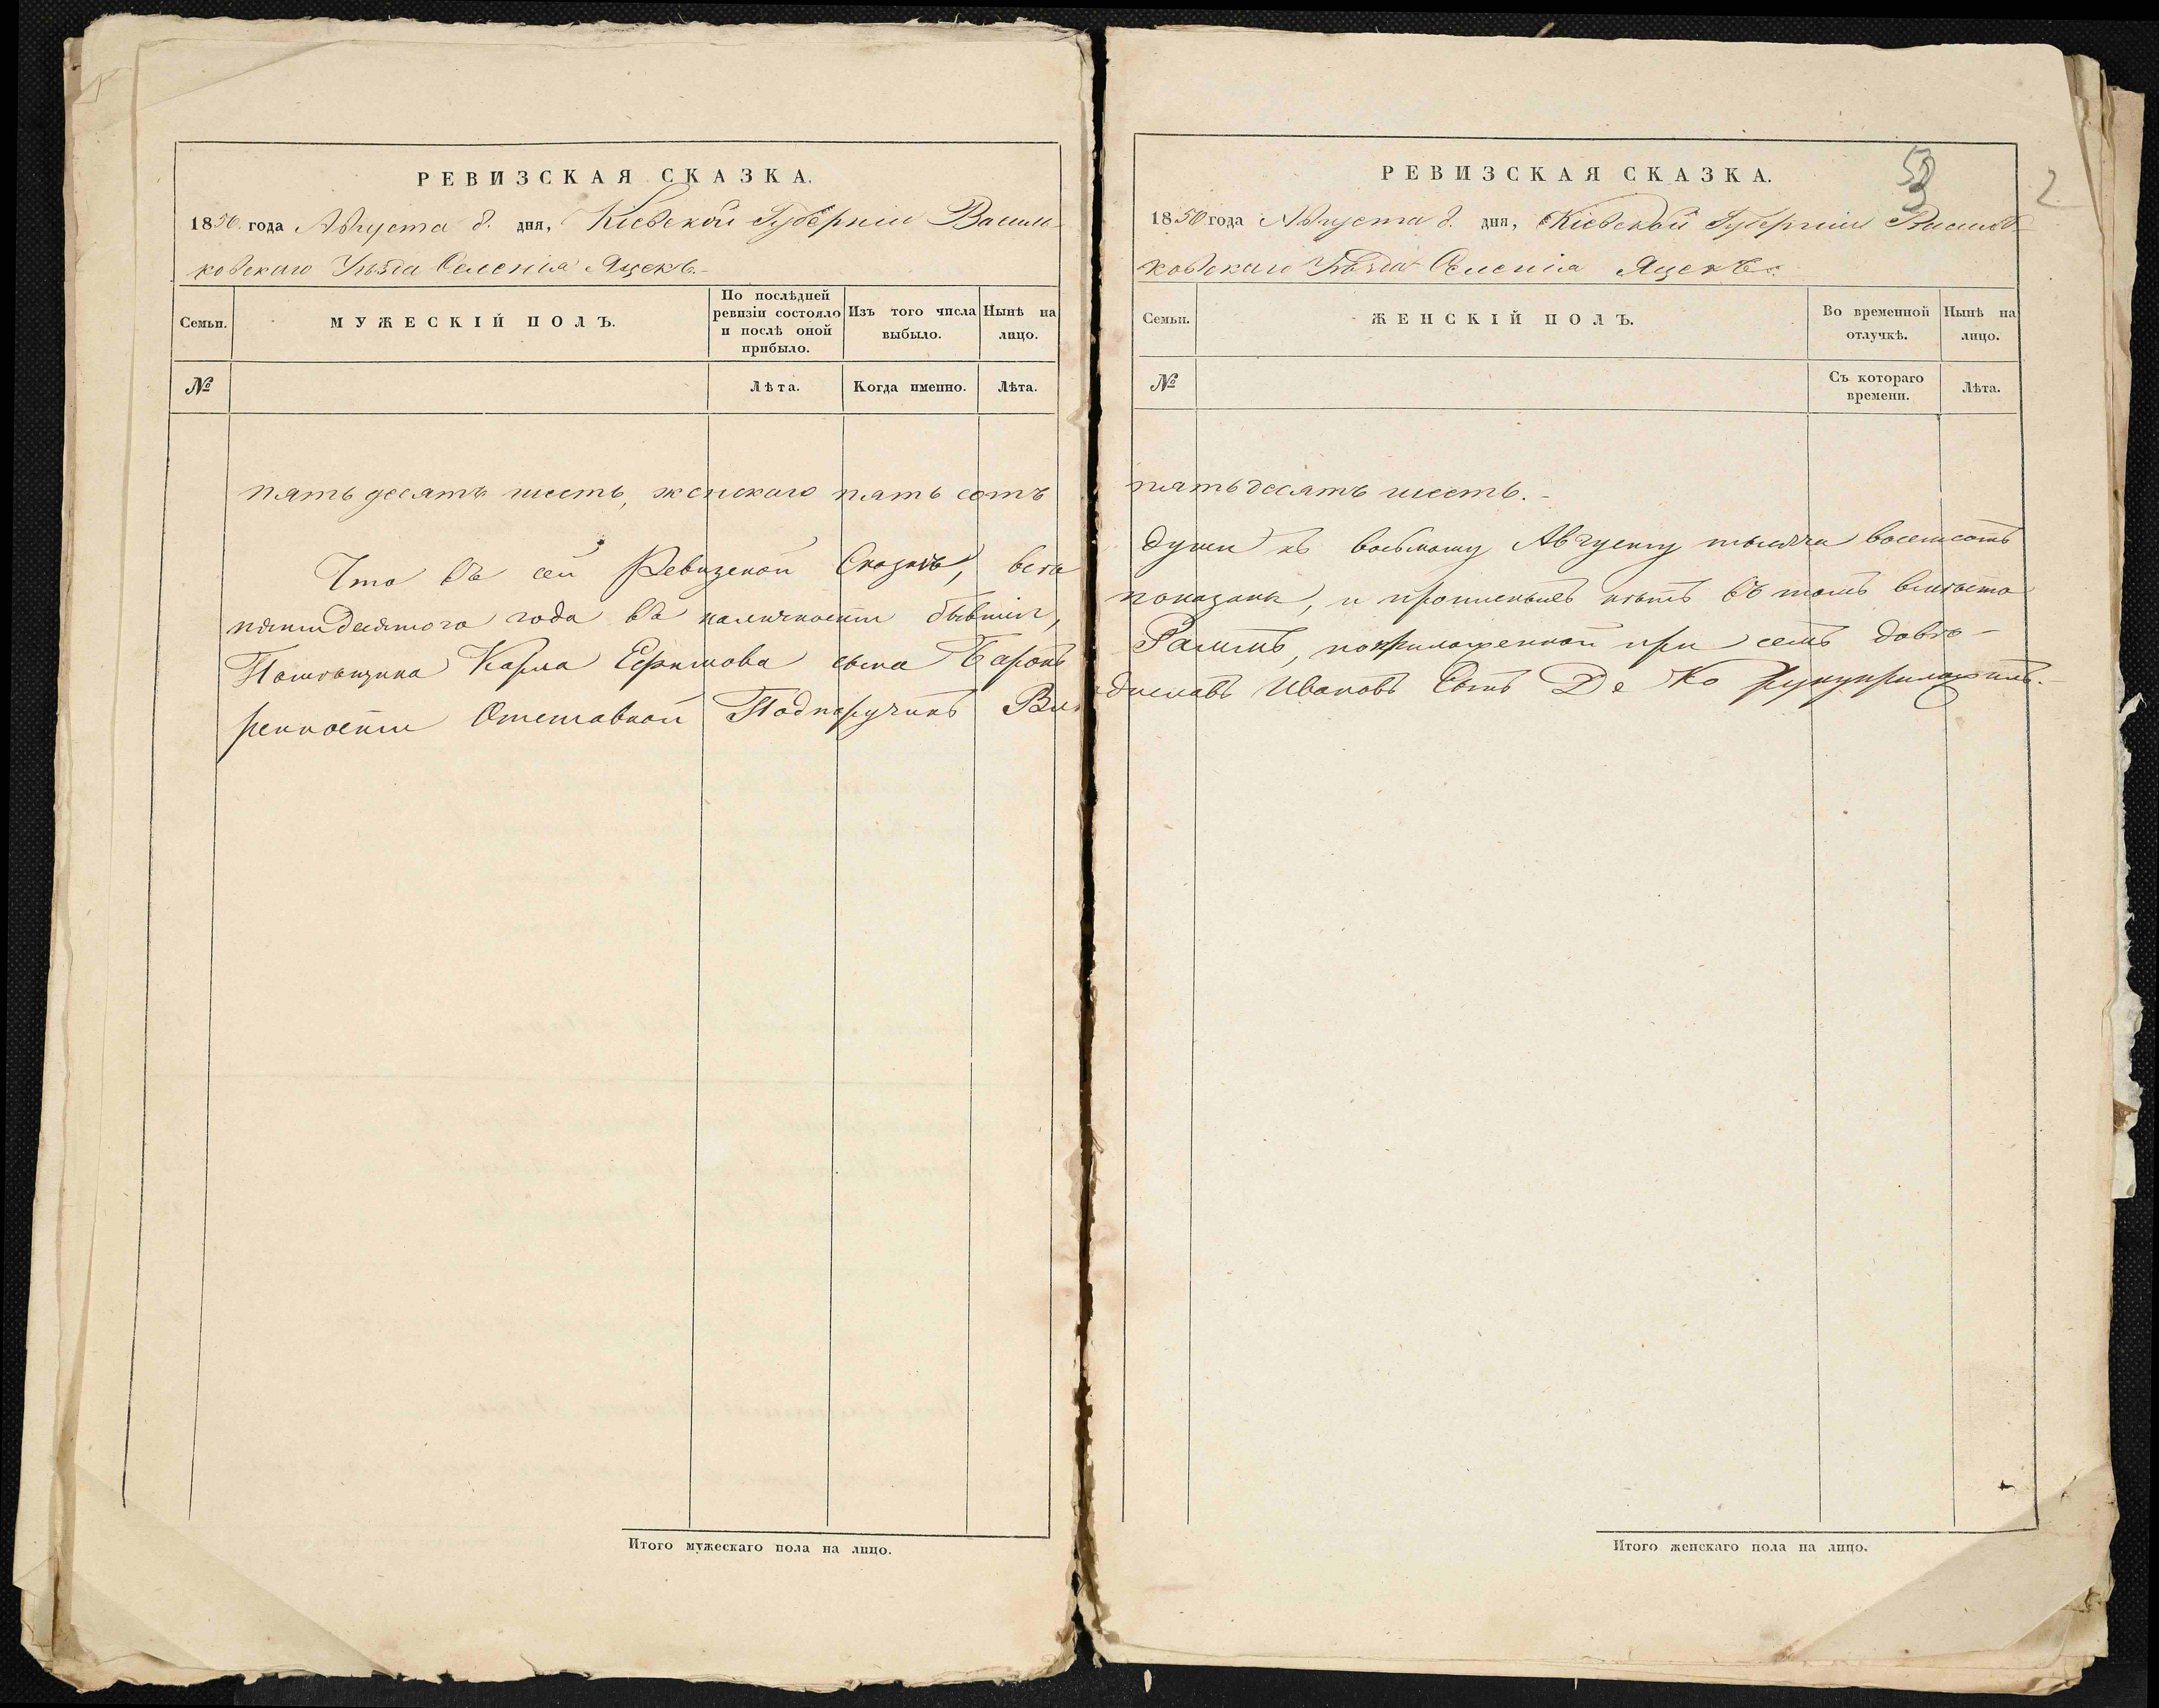 РЕВИЗСКАЯ СКАЗКА.
1850 года Августа 8. дня, Кіевской Губерніи Василь-
ковскаго Уѣзда Селенія Яцекъ.-
Семьи.
МУЖЕСКІЙ ПОЛЪ.
По послѣдней
ревизіи состояло
и послѣ оной
прибыло.
Изъ того числа
выбыло.
Нынѣ на
лицо.
№
Лѣта.
Когда именно.
Лѣта.
пятьдесятъ шесть, женскаго пять сотъ
Что въ сей Ревизской Сказкѣ, всѣ
пятидесятого года въ наличности бывшія,
Помѣщика Карла Ефимова сына Баронъ
ренности Отставной Подпоручикъ Вла
Итого мужескаго пола на лицо.
РЕВИЗСКАЯ СКАЗКА.
2
1850 года Августа 8. дня, Кіевской Губерніи Василь
ковскаго Уѣзда Селенія Яцекъ.
Семьи.
ЖЕНСКІЙ ПОЛЪ.
Во временной
отлучкѣ.
Нынѣ на
лицо.
№
Съ котораго
времени.
Лѣта.
пятьдесятъ шесть.-
души къ восьмому Августу тысяча восемсотъ
показаны, и нѣтъ въ томъ вмѣсто
при семъ довѣ-
диславъ Ивановъ Сынъ Де руку приложилъ.-
Итого женскаго пола на лицо.